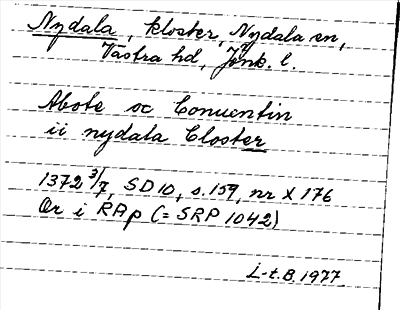 Nydala, kloster, Nydala sn,
Västra hd, Jönk. l.
Abote oc Conuentin
ii nydala Closter
1372 3/7, SD 10, s. 159, nr X 176
Or i RAp (= SRP 1042)
L-t. B. 1977